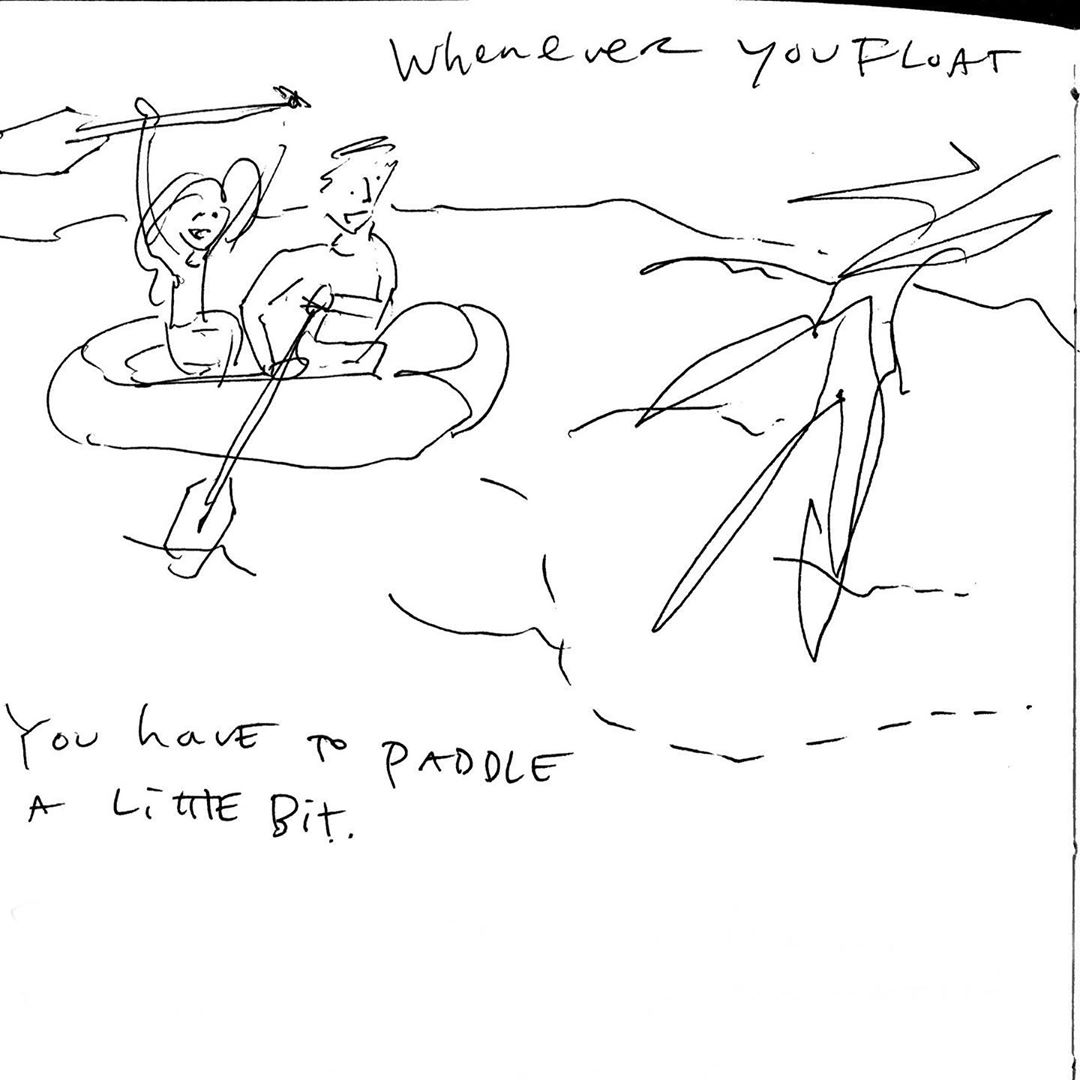 Whenever YOU FLOAT
You have to PADDLE
A LiTTLE BiT.